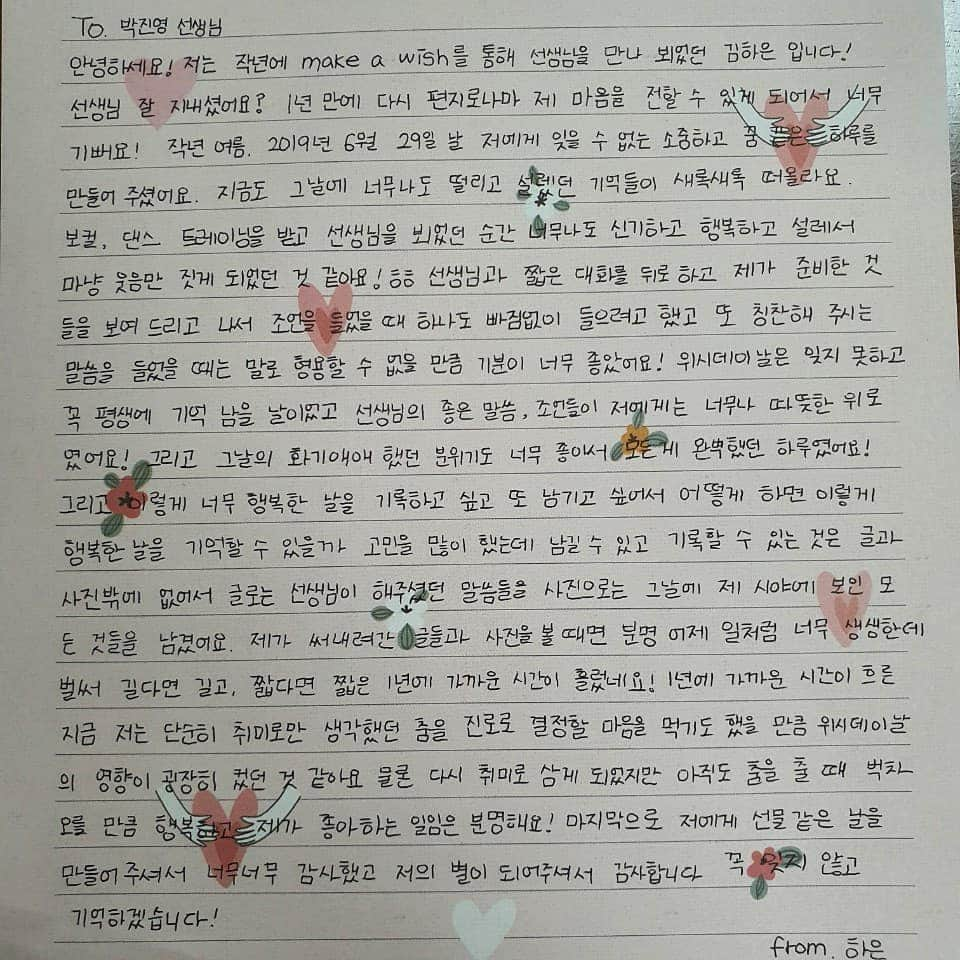 To. 박진영 선생님
안녕하세요! 저는 작년에 make a wish를 통해 선생님을 만나 뵈었던 김하은 입니다!
선생님 잘 지내셨어요? 1년 만에 다시 편지로나마 제 마음을 전할 수 있게 되어서 너무
기뻐요! 작년 여름. 2019년 6월 29일 날 저에게 잊을 수 없는 소중하고 꿈 같은 하루를
만들어 주셨어요. 지금도 그날에 너무나도 떨리고 설레던 기억들이 새록새록 떠올라요.
보컬, 댄스 트레이닝을 받고 선생님을 뵈었던 순간 너무나도 신기하고 행복하고 설레서
마냥 웃음만 짓게 되었던 것 같아요! ㅎㅎ 선생님과 짧은 대화를 뒤로 하고 제가 준비한 것
들을 보여 드리고 나서 조언을 들었을 때 하나도 빠짐없이 들으려고 했고 또 칭찬해 주시는
말씀을 들었을 때는 말로 형용할 수 없을 만큼 기분이 너무 좋았어요! 위시데이날은 잊지 못하고
꼭 평생에 기억 남을 날이었고 선생님의 좋은 말씀, 조언들이 저에게는 너무나 따뜻한 위로
였어요! 그리고 그날의 화기애애 했던 분위기도 너무 좋아서 모든게 완벽했던 하루였어요!
그리고 이렇게 너무 행복한 날을 기록하고 싶고 또 남기고 싶어서 어떻게 하면 이렇게
행복한 날을 기억할 수 있을까 고민을 많이 했는데 남길 수 있고 기록할 수 있는 것은 글과
사진밖에 없어서 글로는 선생님이 해주셨던 말씀들을 사진으로는 그날에 제 시야에 보인 모
든 것들을 남겼어요. 제가 써내려간 글들과 사진을 볼 때면 분명 어제 일처럼 너무 생생한데
벌써 길다면 길고, 짧다면 짧은 1년에 가까운 시간이 흘렀네요! 1년에 가까운 시간이 흐른
지금 저는 단순히 취미로만 생각했던 춤을 진로로 결정할 마음을 먹기도 했을 만큼 위시데이날
의 영향이 굉장히 컸던 것 같아요 물론 다시 취미로 삼게 되었지만 아직도 춤을 출 때 벅차
오를 만큼 행복하고 제가 좋아하는 일임은 분명해요! 마지막으로 저에게 선물 같은 날을
만들어 주셔서 너무너무 감사했고 저의 별이 되어주셔서 감사합니다 꼭 잊지 않고
기억하겠습니다!
from. 하은